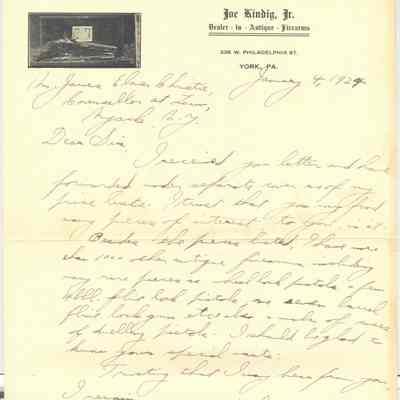 Joe Kindig, Jr.
Dealer - in - Antique - Firearms
336 W. PHILADELPHIA ST.
YORK, PA.
January 4, 1924
Mr. James Elmer Christie,
Counsellor at Law,
Nyack N.Y.
Dear Sir,
I received your letter and have
forwarded under separate cover one of my
price lists. I trust that you may find
many pieces of interest to you in it.
Besides the pieces listed, I have more
than 1000 other antique firearms including
many rare pieces as wheel lock pistols, a few
flint lock pistols, seven barrel
flint lock gun etc. also a number of cases
of duelling pistols. I should be glad to
know your special wants.
Trusting that I may hear from you,
I remain